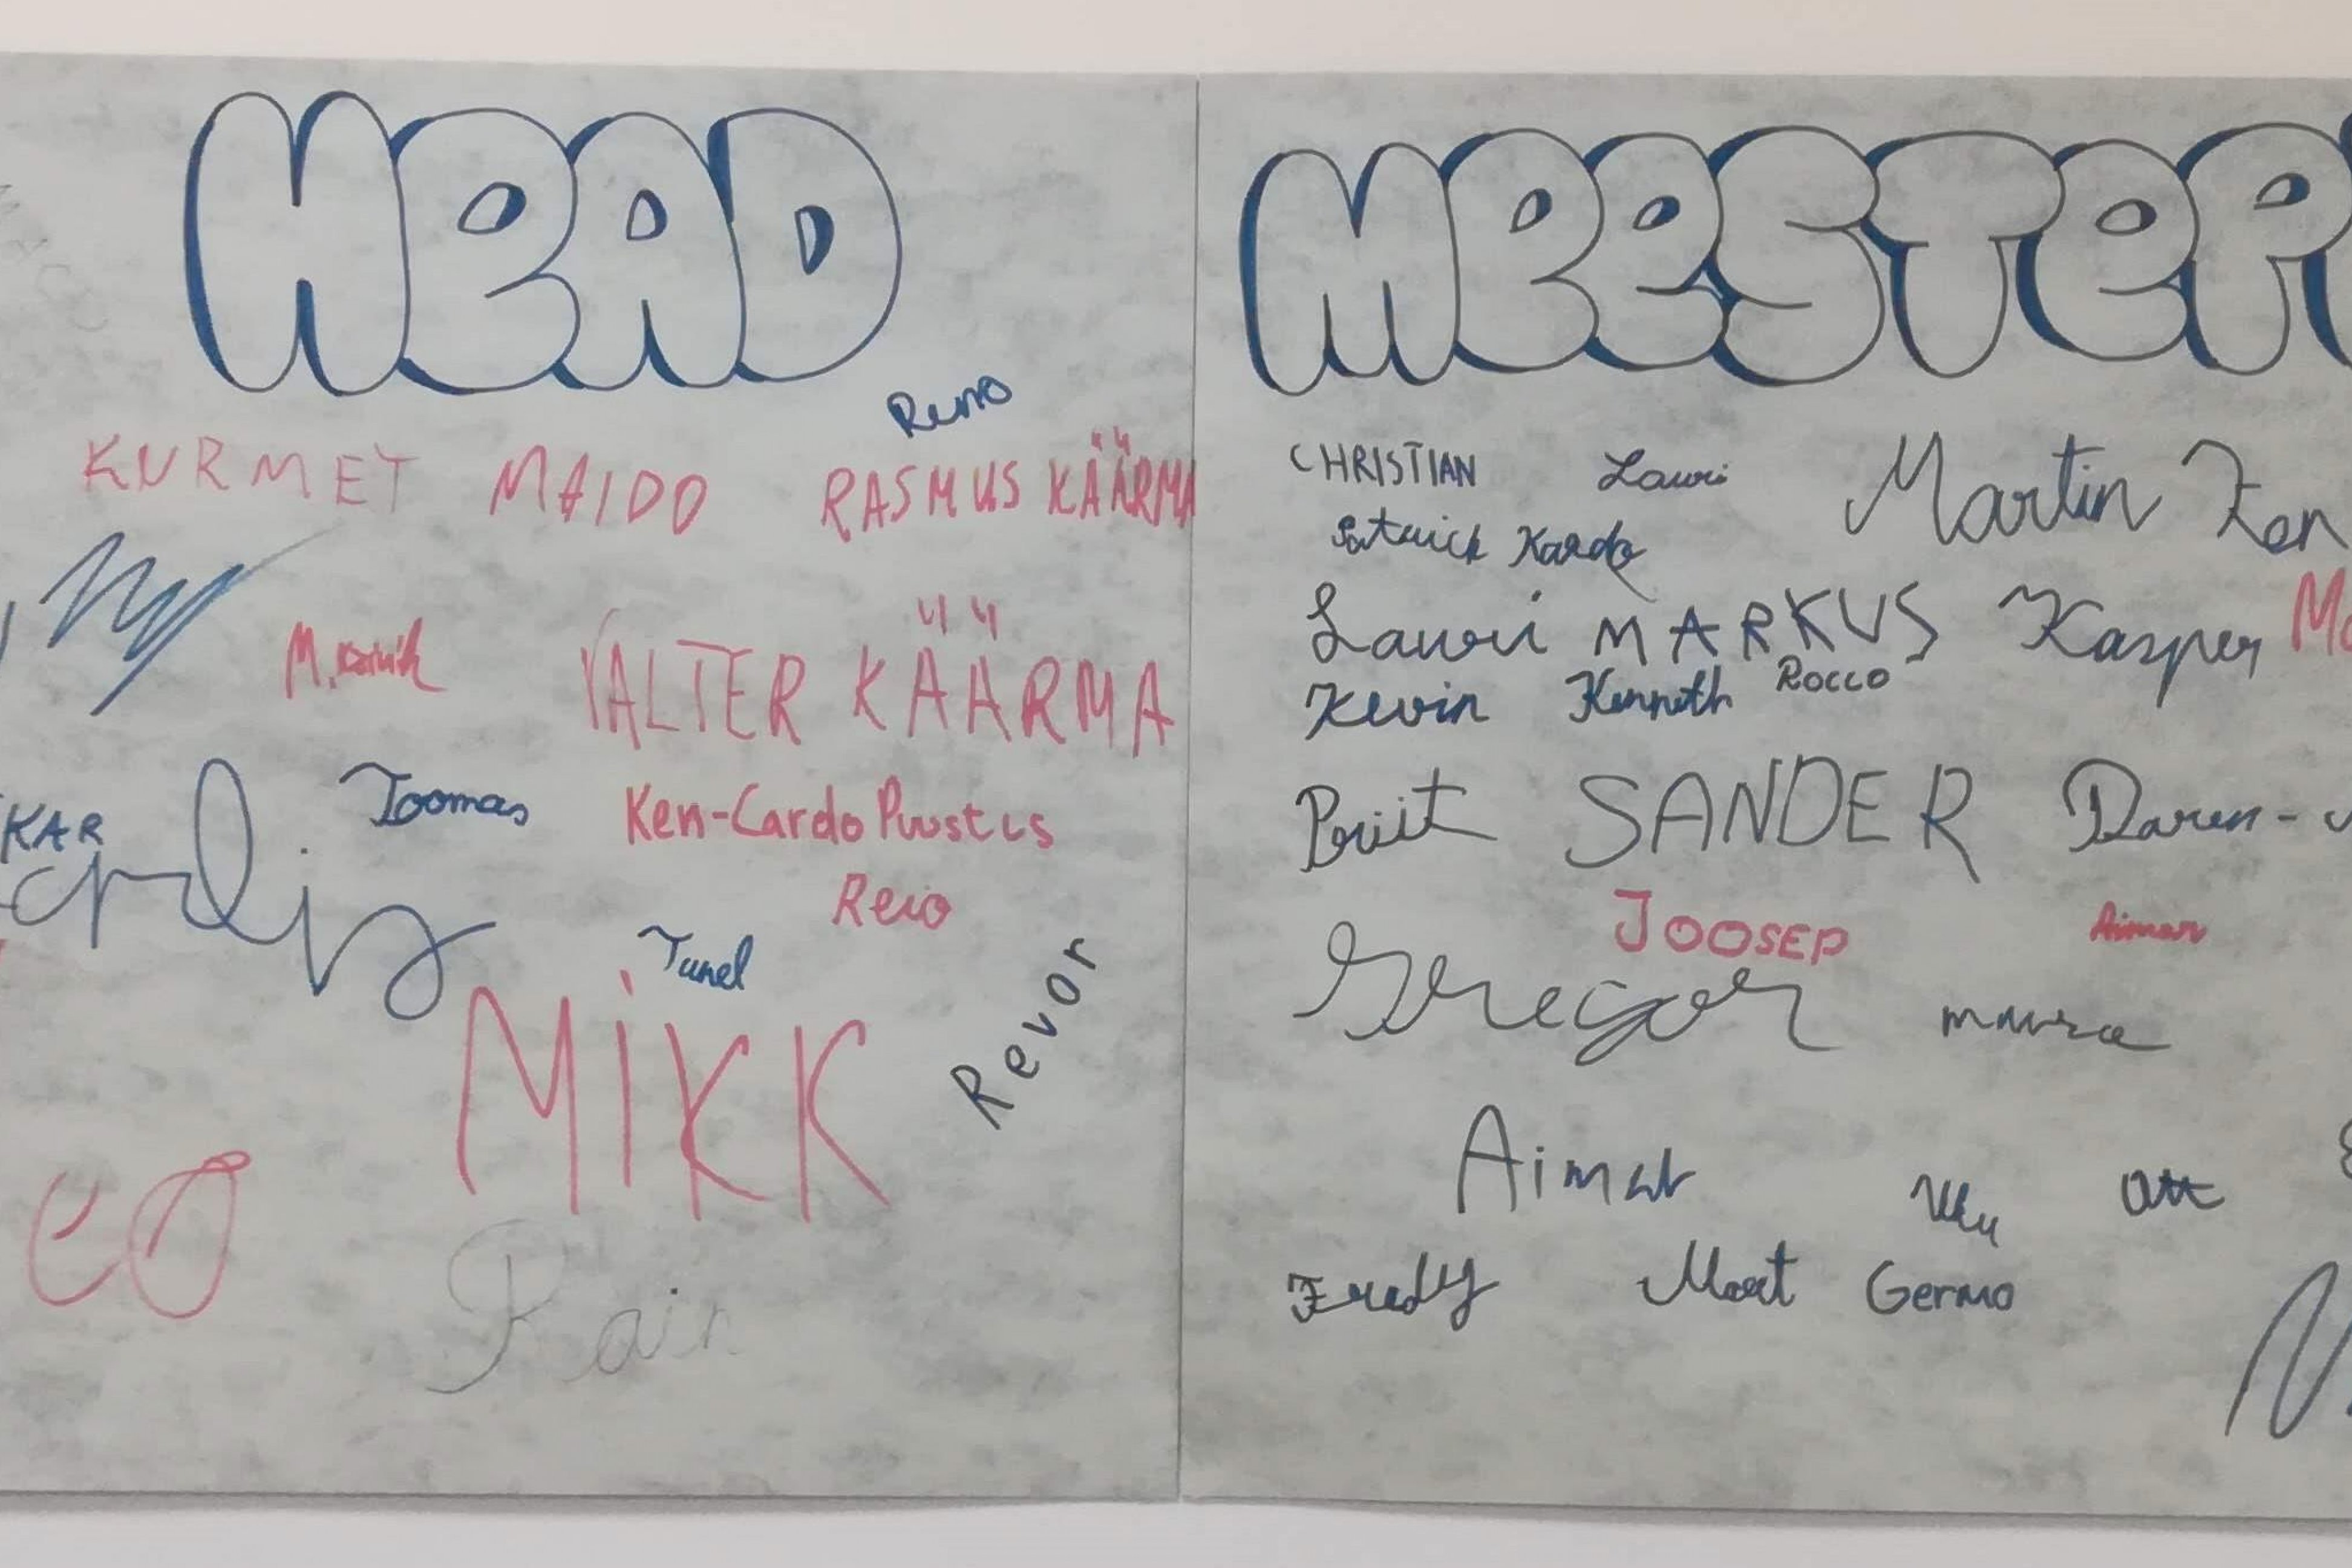 HEAD
Remo
KURMET MAIDO RASMUS KÄÄRMA
VALTER KÄÄRMA
KAR
Toomas
Ken-Cardo Puustus
Reio
Tanel
MIKK
Revor
Rain
MEESTER
CHRISTIAN Lauri Martin Ken
Patrick Kardo
Lauri MARKUS Kasper
Kevin Kenneth Rocco
Priit SANDER Daren-
JOOSEP Aimar
Gregor
Aimar Uku Ott
Fredy Mart Germo